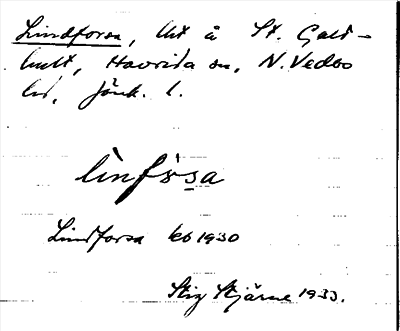 Lindforsa, lht å St. Guld-
hult, Haurida sn, N. Vedbo
hd, Jönk. l.
lìnfs̀s̠a
Lindforsa kb 1930
Stig Stjärne 1933.